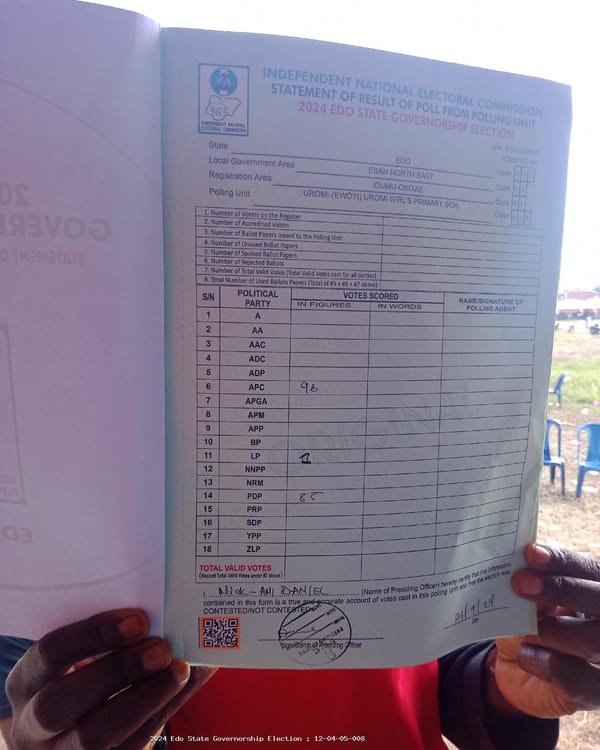 INDEPENDENT NATIONAL ELECTORAL COMMISSION
STATEMENT OF RESULT OF POLL FROM POLLING UNIT
2024 EDO STATE GOVERNORSHIP ELECTION
INEC
INDEPENDENT NATIONAL
ELECTORAL COMMISSION
State EDO
Local Government Area ESAN NORTH EAST Code
Registration Area IDUMU-OKOJIE Code
Polling Unit UROMI-(EWOYI) UROMI GIRL'S PRIMARY SCH. Code
1. Number of Voters on the Register
2. Number of Accredited Voters
3. Number of Ballot Papers Issued to the Polling Unit
4. Number of Unused Ballot Papers
5. Number of Spoiled Ballot Papers
6. Number of Rejected Ballots
7. Number of Total Valid Votes (Total Valid Votes cast for all parties)
8. Total Number of Used Ballots Papers (Total of #5 + #6 + #7 above)
S/N POLITICAL PARTY VOTES SCORED NAME/SIGNATURE OF POLLING AGENT
IN FIGURES IN WORDS
1 A
2 AA
3 AAC
4 ADC
5 ADP
6 APC 96
7 APGA
8 APM
9 APP
10 BP
11 LP
12 NNPP
13 NRM
14 PDP 85
15 PRP
16 SDP
17 YPP
18 ZLP
ORIGINAL
TOTAL VALID VOTES
(Record Total Valid Votes under #7 above)
I, NICK-ANI DANIEL (Name of Presiding Officer) hereby certify that the information
contained in this form is a true and accurate account of votes cast in this polling unit and that the election was
CONTESTED/NOT CONTESTED
21/9/24
Sign/Stamp of Presiding Officer
2024 Edo State Governorship Election : 12-04-05-008